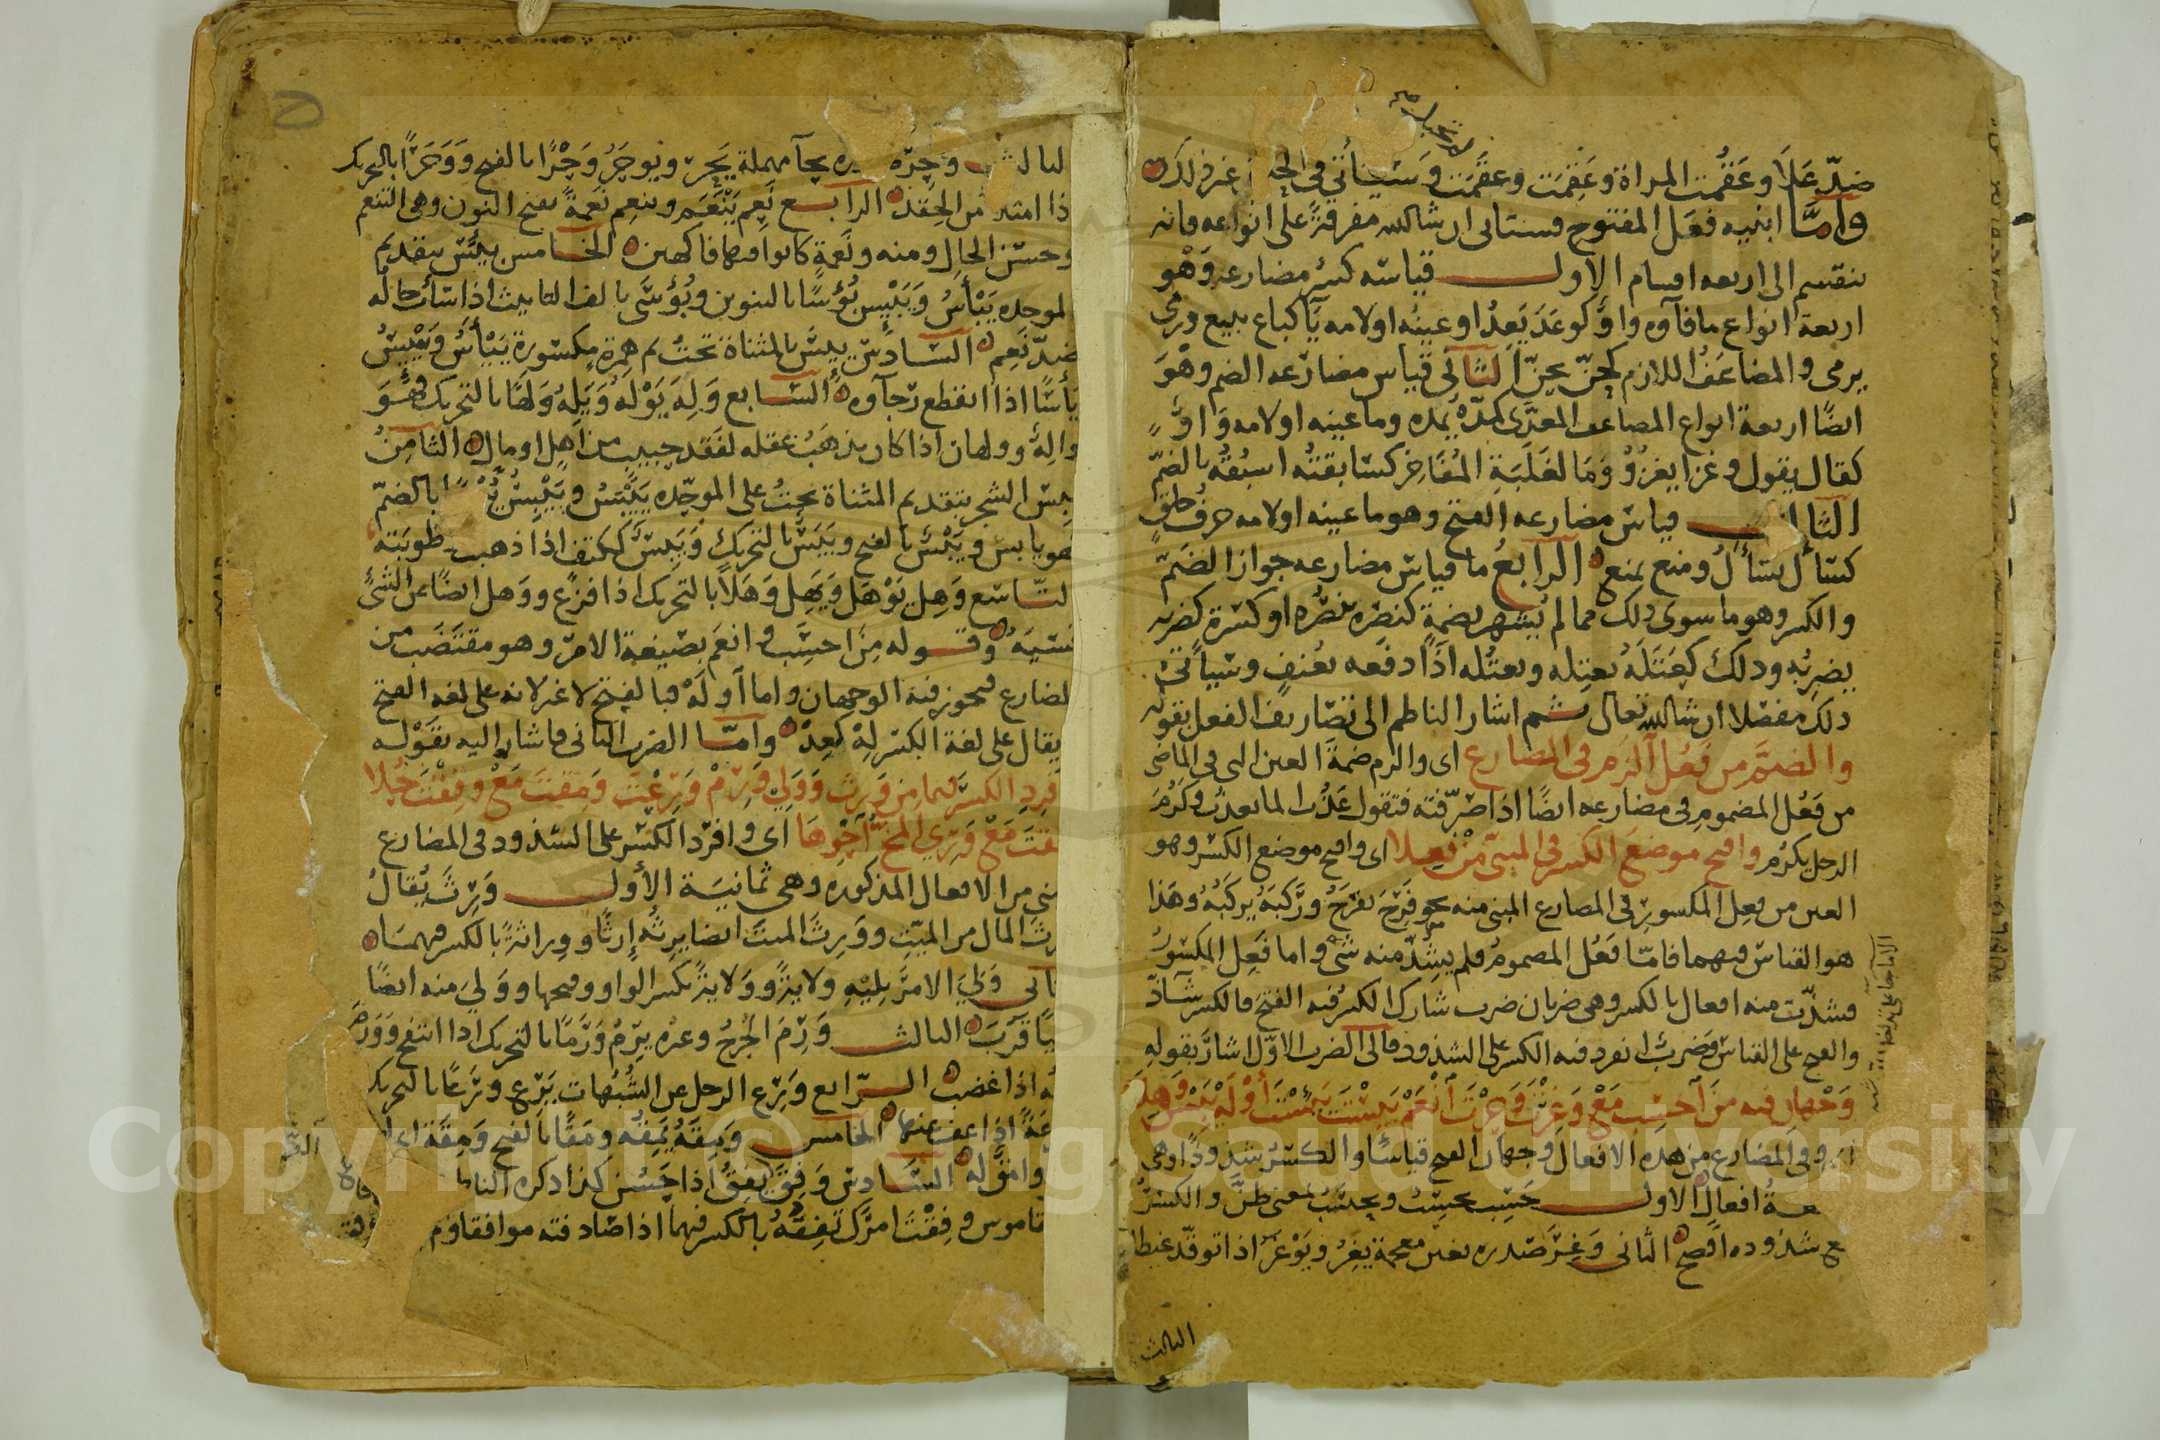 ضدّ عَلَا وعَقُمت المراة وعَقِمَت وعقَمَت وَسَيأتي في غير ذلك
وامَّا ابنيه فعَل المفتوح فستاتى ان شاالله مفرقةً على انواعه فانه
ينقسم الى اربعه اقسام الاول قياسه كسرُ مضارعه وَهْو
اربعة انواع ما فآوه واوٌ كوعَدَ يَعِدُ او عينه او لامه يآ كباع يبيع ورمى
يرمى والمضاعَفُ اللازم كحنّ يحنّ الثانى قياس مضارعه الضم وهْوَ
ايضًا اربعة انواع المضاعف المعدَّى كمدّه يمُده وما عينه او لامه وَاوٌ
كقال يقول وغزا يغزُوْ وَمَا لغَلَبَةِ المُفَاخِر كسَابقتُه اسبُقُه بالضمّ
الثالث قياس مضارعه الفتح وهو ما عينه او لامه حرفُ حلقٍ
كسَأل يسْألُ ومنع يمنع الرابعُ ما قياس مضارعه جواز الضَمّ
والكسر وهو ما سوى ذلك مما لم يُشهر بضمةٍ كنصَره ينصُره او كسْرة كضربه
يضرِبُه وذلك كعَتَلَهُ يعتِله ويعتُله اذا دفعه بعُنفٍ وسَيأتى
ذلك مفصّلا ان شاالله تعالى ثم اشار الناظم الى تصَاريف الفعل بقوله
والضمَّ من فَعُل الزَم فى المضارع اى والزم ضمةَ العين التى فى الماضى
من فَعُل المضمومِ فى مضارعه ايضًا اذا صَرّفته فتقول عَذُب الما يعذُب وكَرُمَ
الرجل يكرُم وافتح موضعَ الكسر فى المبنىّ مِنْ فَعِلا اى وافتح موضع الكسر وهو
العين من فعِل المكسورِ فى المضارع المبنى منه نحو فَرِحَ يفرَحُ ورَكبَهُ يركَبُهُ وهَذا
هو القياس فيهما فامّا فَعُل المضمومُ فلم يشِذّ منه شىٌ واما فَعِل المكسورُ
فشذّت منه افعال بالكسر وهى ضربان ضرب شارك الكسرُ فيه الفتح فالكسر شاذّ
والفتح على القياس وَضرب انفرد فيه الكسر على الشذوذ فالى الضرب الاوّل اشار بقوله
وَجْهان فيه من احسِب مَعْ وَغِرْتَ وَحِرْتَ انْعَمْ بَئِسْتَ يَئِسْتَ أوْلَهْ يَبْس وَهِلا
اى وفى المضارع من هذه الافعال وجهان الفتح قياسًا والكسرُ شذوذًا وهى
تسعةُ افعال الاول حَسِب يحسِبُ ويحسَبُ بمعنى ظنّ والكسرُ
مع شذوذه افصح الثانى وَغِرَ صَدره بغين معجمة يغِرُ ويَوْغَرُ اذا توقّد غيظا
الثالث
الثالث وَحِرَ صدره بحآ مهملة يَحِر ويوحَرُ وَحْرًا بالفتح وَوَحَرًا بالتحريك
اذا امتلا من الحِقد الرابع نَعِم يَنْعَم وينعِم نَعمةً بفتح النون وهى التنعم
وحسن الحال ومنه ونَعمةٍ كانوا فيها فاكهين الخامس بئِسَ بتقديم
الموحده يَبْأسُ وَيَبْئِس بُؤسًا بالتنوين وبُؤسَى بالف التانيث اذا سَاءت حاله
ضِدّ نَعِم السادس يئِسَ بالمثناة تحت ثم همزةٍ مكسورة يَيْأسُ وَيَيْئِسُ
يَأسًا اذا انقطع رَجآوه السّابع وَلِهَ يَوْلَهُ وَيَلِهُ وَلَهًا بالتحريك فهُوَ
وَالِهٌ وولهان اذا كان يذهَبُ عقله لفَقد حبيبٍ من اهلٍ او مال الثامنُ
يبِسَ الشجر بتقديم المثناة تحتُ على الموحّده يَيْبَسُ ويَيْبِسُ يُبْسًا بالضمّ
فهو يابس ويَبْسٌ بالفتح ويَبَسٌ بالتحريك وَيَبِسٌ ككتف اذا ذهبت رطوبَته
التّاسع وَهِل يَوْهَل وَيَهِل وَهَلًا بالتحريك اذا فزع ووَهل ايضًا عن الشئ
نَسيَهُ وقوله مِن احسَِب وانعَم بصيغة الامر وهو مقتَضَب من
المضارع فيجوز فيه الوجهان واما أَوْلَهْ فبالفتح لا غير لانه على لغه الفتح
ويقال على لغة الكسر لِهْ كعِدْ وَامّا الضرب الثانى فاشار اليه بقَوْله
وافرِدِ الكسْرَ فيما مِن وَرِثَ وَوَلِي وَرِمْ وَرِعْتَ وَمِقْتَ مَعْ وَفِقْتَ حُلا
وَثِقتَ مَعْ وَرِىَ المخُّ احْوِهَا اى وافرد الكَسْر على الشذوذ فى المضارع
المبنى من الافعال المذكوره وهى ثمانيَة الأول وَرِثَ يُقالُ
ورِثَ المالَ من الميّتِ ووَرِثَ الميتَ ايضا يرِثُه إرثًا ووِراثةً بالكسر فيهمَا
الثانى وَلِيَ الامرَ يَلِيْهِ وِلايةً ووَلايةً بكسر الواو وفتحها ووَلِيَ منه ايضًا
وَليًا قَرُبَ الثالث وَرِمَ الجُرْحُ وغيره يَرِمُ وَرَمًا بالتحريك اذا انتفخ وَوَرِمَ
انفُه اذا غضب الرّابع وَرِع الرجل عن الشُبُهات يَرِع وَرَعًا بالتحريك
ورِعَةً اذا عفّ عنها الخامس وَمِقهُ يَمِقُه وَمْقًا بالفتح وَمِقَةً اى
احبّه السَّادِس وَفِقَ يَفِقُ اذا حَسُن كذا ذكره الناظم
القاموس وفِقْتَ امرَك تفِقُهُ بالكسر فيهما اذا صَادفته موافقا وَمِ